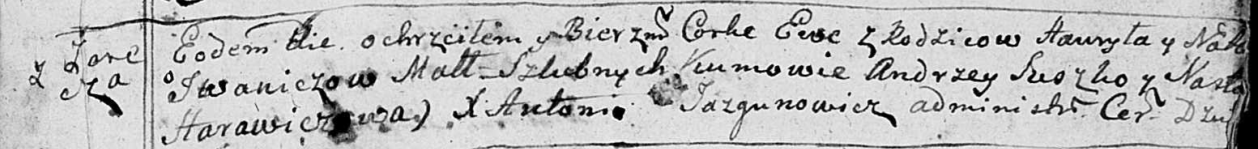 z Zare
cza
Eodem die ochrzciłem y Bierzm Corke Ewe z Rodzicow Hauryła y
Iwaniczow Małż Szlubnych Kumowie Andrzey Suszko y Nasta
Harawiczowa) X Antoni Jazgunowicz administr Cer